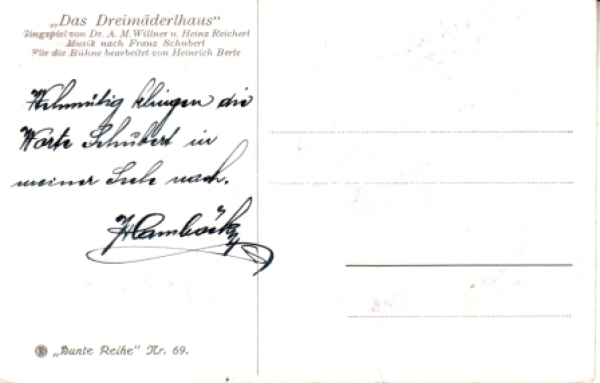 „Das Dreimäderlhaus“
Singspiel von Dr. A. M. Willner u. Heinz Reichert
Musik nach Franz Schubert
Für die Bühne bearbeitet von Heinrich Berte
Wehmütig klingen die
Worte Schubert in
meiner Seele nach.
„Bunte Reihe“ Nr. 69.